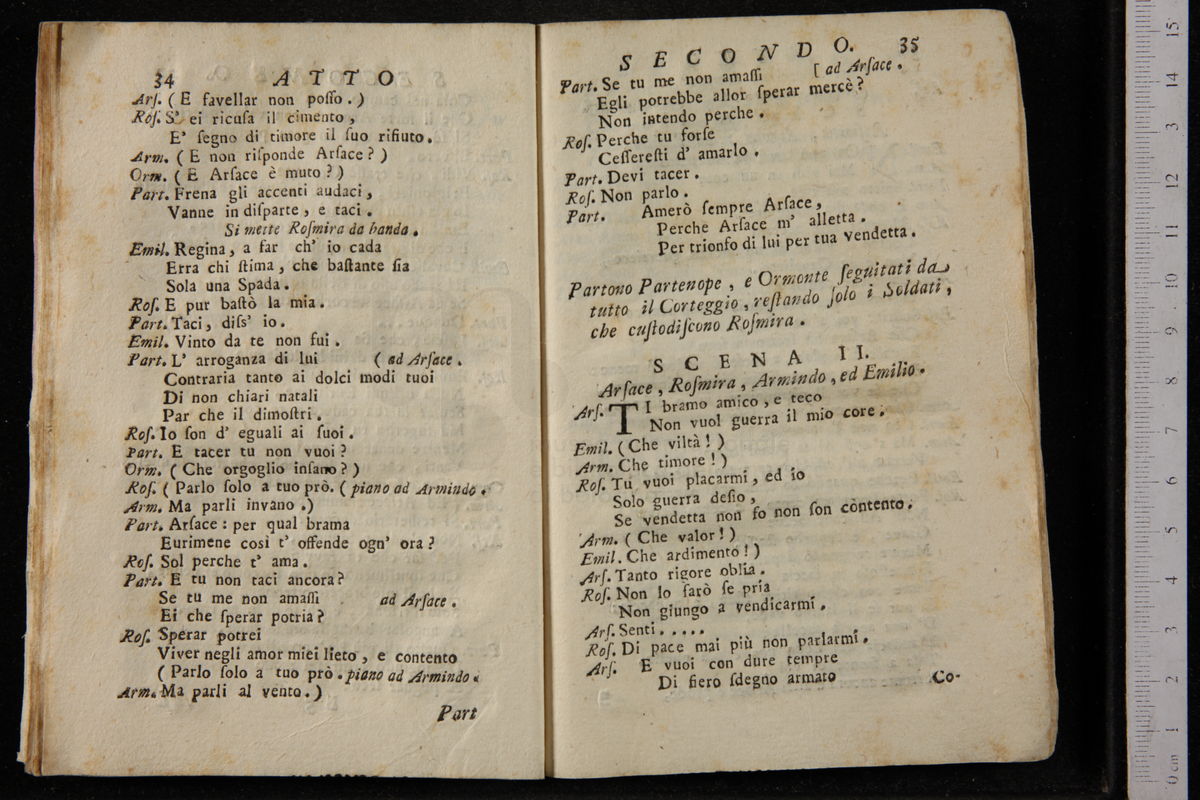 34 ATTO
Arſ. ( E favellar non poſſo. )
Roſ. S' ei ricuſa il cimento ,
E' ſegno di timore il ſuo rifiuto.
Arm. ( E non riſponde Arſace ? )
Orm. ( E Arſace è muto ? )
Part. Frena gli accenti audaci ,
Vanne in diſparte , e taci .
Si mette Roſmira da banda .
Emil. Regina , a far ch' io cada
Erra chi ſtima , che baſtante ſia
Sola una Spada .
Roſ. E pur baſtò la mia .
Part. Taci , diſs' io .
Emil. Vinto da te non fui .
Part. L' arroganza di lui ( ad Arſace .
Contraria tanto ai dolci modi tuoi
Di non chiari natali
Par che il dimoſtri .
Roſ. Io ſon d' eguali ai ſuoi .
Part. E tacer tu non vuoi ?
Orm. ( Che orgoglio inſano ? )
Roſ. ( Parlo ſolo a tuo prò. ( piano ad Armindo .
Arm. Ma parli invano .)
Part. Arſace : per qual brama
Eurimene così t' offende ogn' ora ?
Roſ. Sol perche t' ama .
Part. E tu non taci ancora ?
Se tu me non amaſſi ad Arſace .
Ei che ſperar potria ?
Roſ. Sperar potrei
Viver negli amor miei lieto , e contento
( Parlo ſolo a tuo prò . piano ad Armindo .
Arm. Ma parli al vento . )
Part
SECONDO. 35
Part. Se tu me non amaſſi [ ad Arſace .
Egli potrebbe allor ſperar mercè ?
Non intendo perche .
Roſ. Perche tu forſe
Ceſſereſti d' amarlo .
Part. Devi tacer .
Roſ. Non parlo .
Part. Amerò ſempre Arſace ,
Perche Arſace m' alletta .
Per trionfo di lui per tua vendetta .
Partono Partenope , e Ormonte ſeguitati da
tutto il Corteggio , reſtando ſolo i Soldati ,
che cuſtodiſcono Roſmira .
SCENA II.
Arſace , Roſmira , Armindo , ed Emilio .
Arſ. TI bramo amico , e teco
Non vuol guerra il mio core .
Emil. ( Che viltà ! )
Arm. Che timore ! )
Roſ. Tu vuoi placarmi , ed io
Solo guerra deſio ,
Se vendetta non fo non ſon contento .
Arm. ( Che valor ! )
Emil. Che ardimento ! )
Arſ. Tanto rigore oblìa .
Roſ. Non lo farò ſe pria
Non giungo a vendicarmi .
Arſ. Senti . . . . .
Roſ. Di pace mai più non parlarmi .
Arſ. E vuoi con dure tempre
Di fiero ſdegno armato
Co-
15
14
13
12
11
10
9
8
7
6
5
4
3
2
1
0 cm